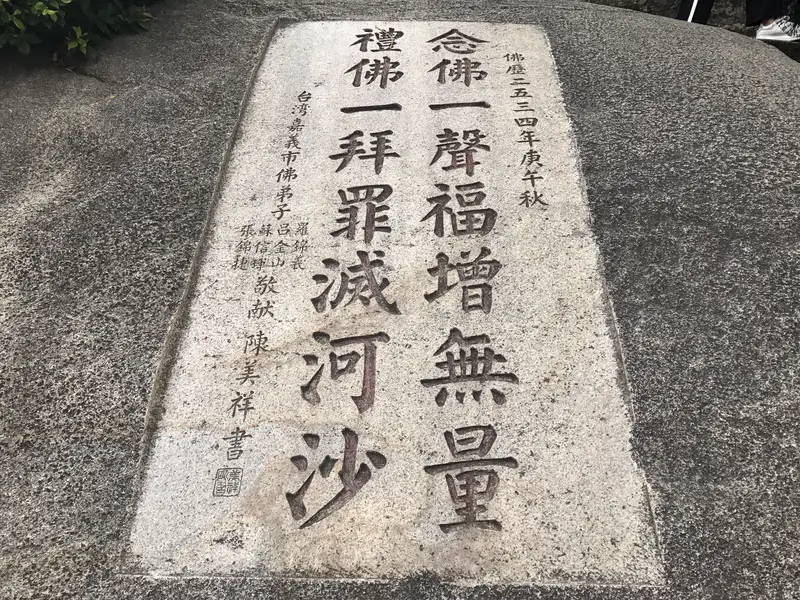 佛歷二五三四年庚午秋
念佛一聲福增無量
禮佛一拜罪滅河沙
台湾嘉義市佛弟子
羅錦
呂金山
蘇信輝
張錦
敬献 陳美祥書